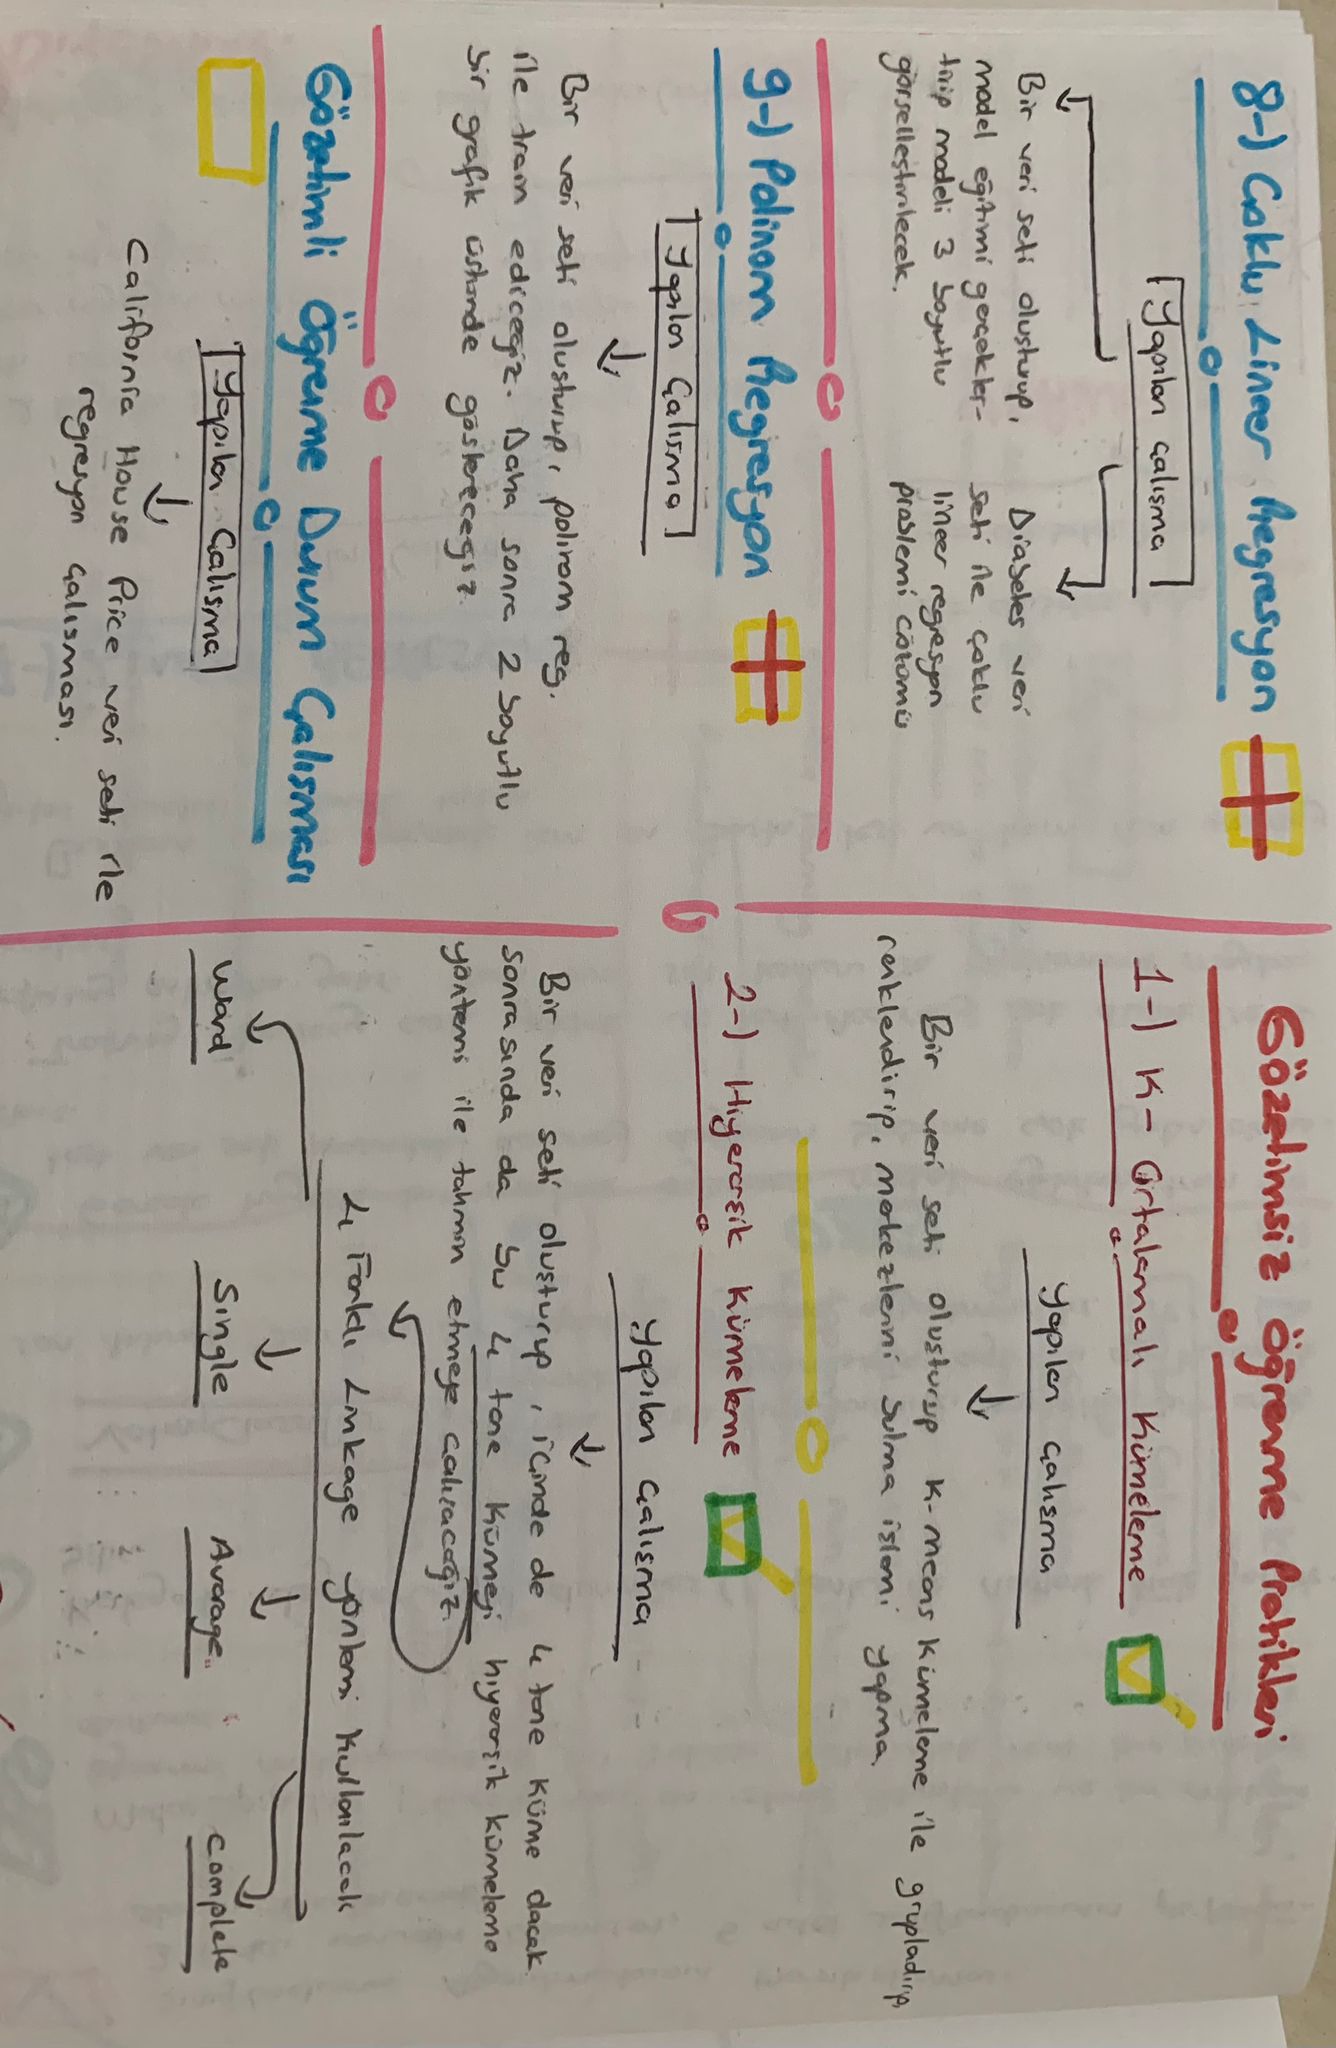 8-) Çoklu Lineer Regresyon
Yapılan çalışma
Bir veri seti oluşturup,
model eğitimi gerçekleş-
tirip modeli 3 boyutlu
görselleştirilecek.
Diabetes veri
seti ile çoklu
lineer regresyon
problemi çözümü
9-) Polinom Regresyon
Yapılan Çalışma
Bir veri seti oluşturup, polinom reg.
ile train ediceğiz. Daha sonra 2 boyutlu
bir grafik üstünde göstereceğiz.
Gözetimli Öğrenme Durum Çalışması
Yapılan Çalışma
California House Price veri seti ile
regresyon çalışması.
Gözetimsiz Öğrenme Pratikleri
1-) K- Ortalamalı Kümeleme
Yapılan çalışma
Bir veri seti oluşturup K-means kümeleme ile grupladırıp,
renklendirip, merkezlerini bulma işlemi yapma.
2-) Hiyerarşik Kümeleme
Yapılan çalışma
Bir veri seti oluşturup, içinde de 4 tane küme olacak
sonrasında da bu 4 tane kümeyi hiyerarşik kümeleme
yöntemi ile tahmin etmeye çalışacağız.
4 Farklı Linkage yöntemi kullanılacak
Ward
Single
Avarage
complete